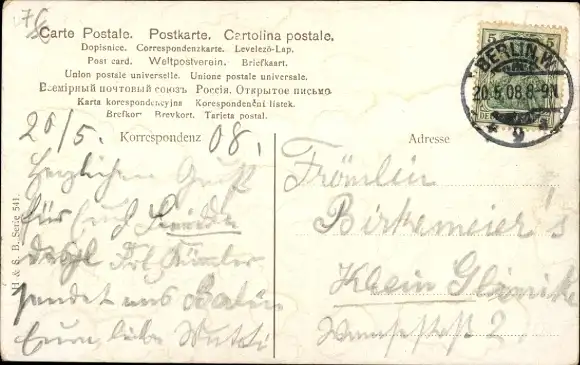 Carte Postale. Postkarte. Cartolina postale.
Dopisnice. Correspondenzkarte. Levelező-Lap.
Post card. Weltpostverein. Briefkaart.
Union postale universelle. Unione postale universale.
Всемірный почтовый союзъ Россія. Открытое письмо.
Karta korespondencyjna Korespondenční listek.
Brefkort Brevkort. Tarjeta postal.
Korrespondenz
Adresse
5 5
BERLIN.W.
20.5.08.8-9N
9
20/5. 08.
Herzlichen Gruß
für Euch
sendet uns
Eure liebe Mutti
Fräulein
Birkemeier's
Klein Glienicke
2
H & S. B. Serie 541.